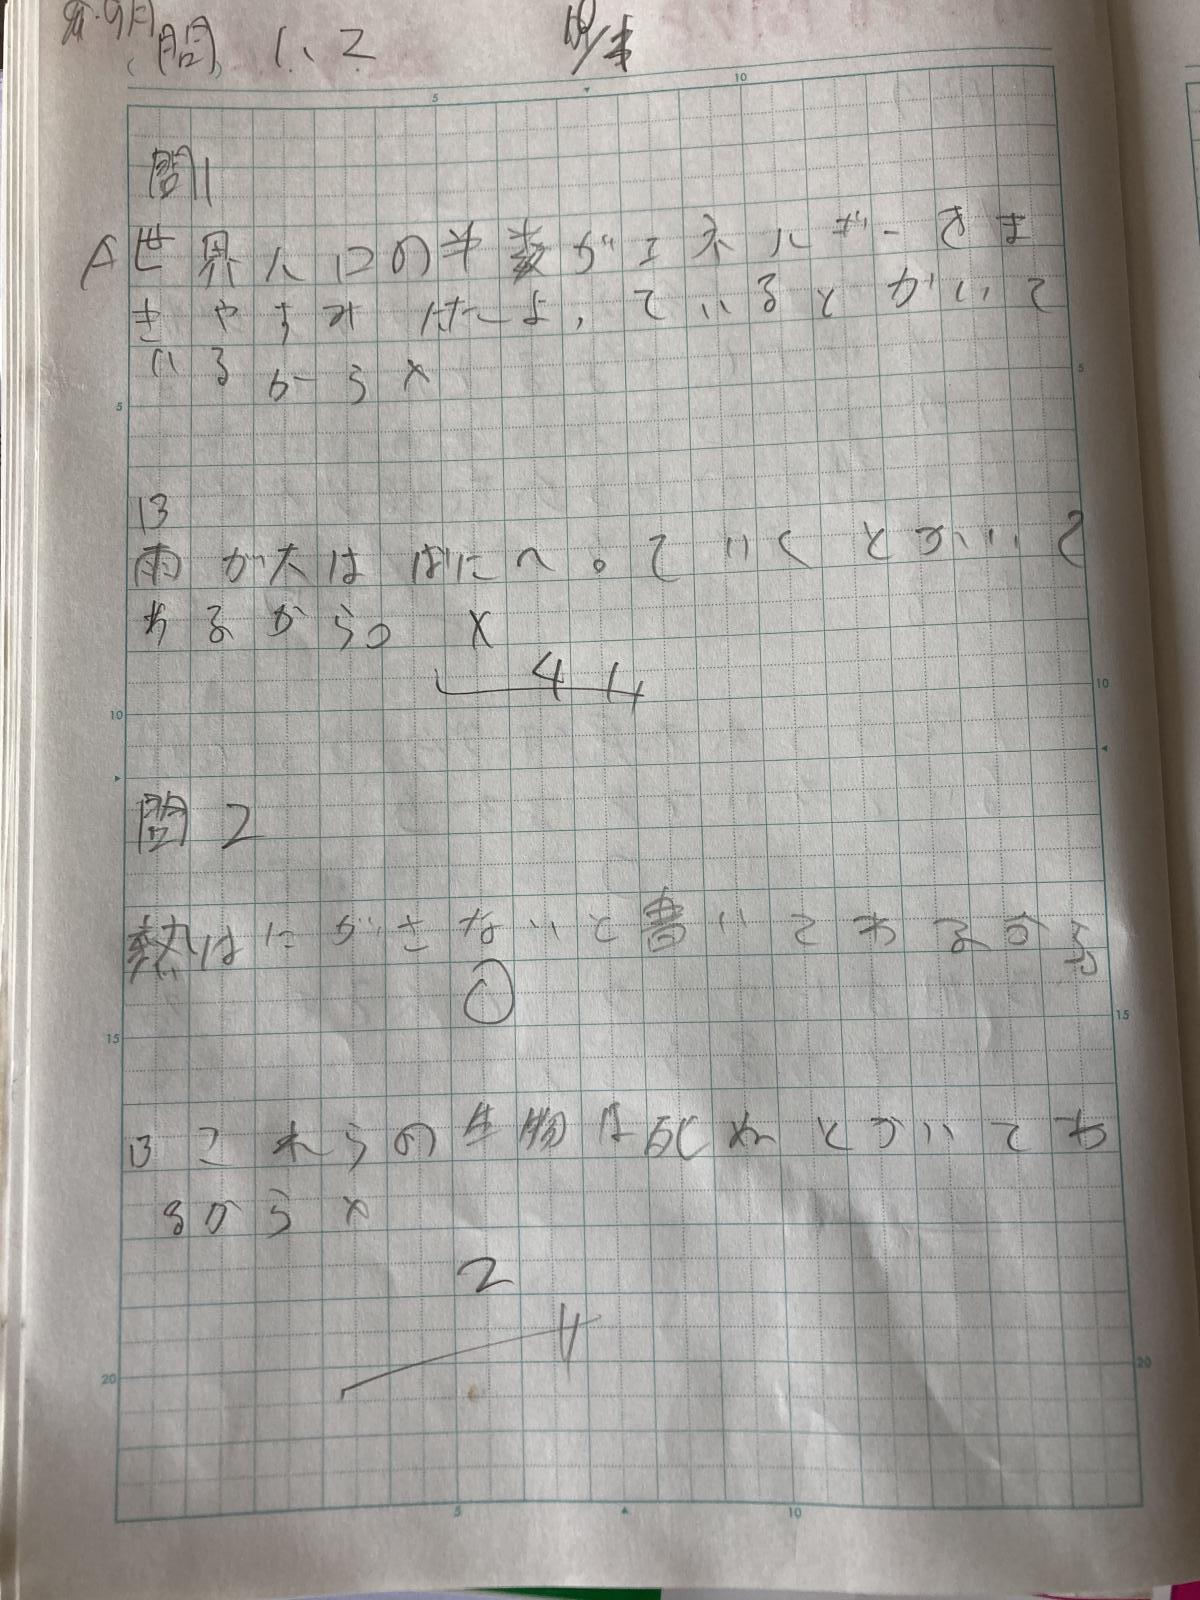 問 1、2
5
10
問1
A世界人口の半数がエネルギーをま
きやすみ
ているとかいて
いるから x
5
5
B
雨が大はばにへっていくとかいて
あるから。 x
4 4
10
10
問 2
熱はにがさないと書いてあるから
①
15
15
B これらの生物は死ねとかいてあ
るから x
2
4
20
20
5
10